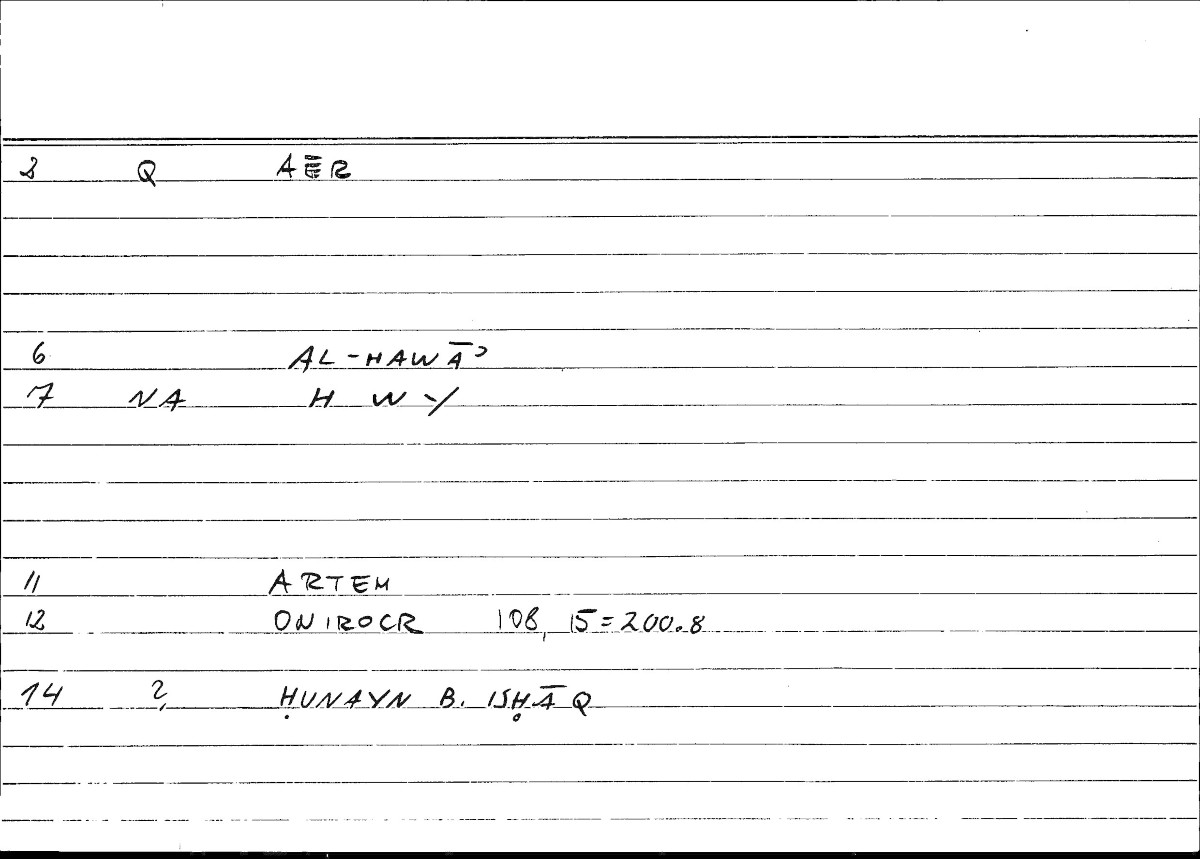 3 Q AER
6 AL-HAWĀʾ
7 NA H W Y
11 ARTEM
12 ONIROCR 108, 15=200.8
14 2, ḤUNAYN B. ISḤĀQ